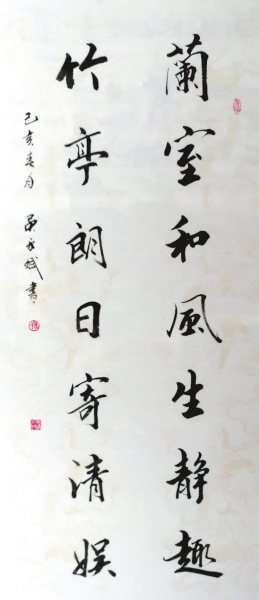 蘭室和風生靜趣
竹亭朗日寄清娱
己亥春月
書